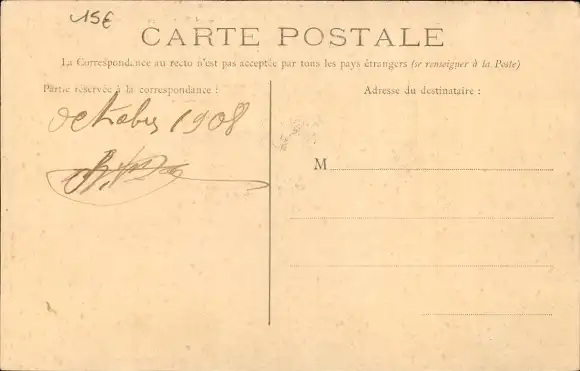 15€
CARTE POSTALE
La Correspondance au recto n'est pas acceptée par tous les pays étrangers (se renseigner à la Poste)
Partie réservée à la correspondance :
Adresse du destinataire :
octobre 1908
M